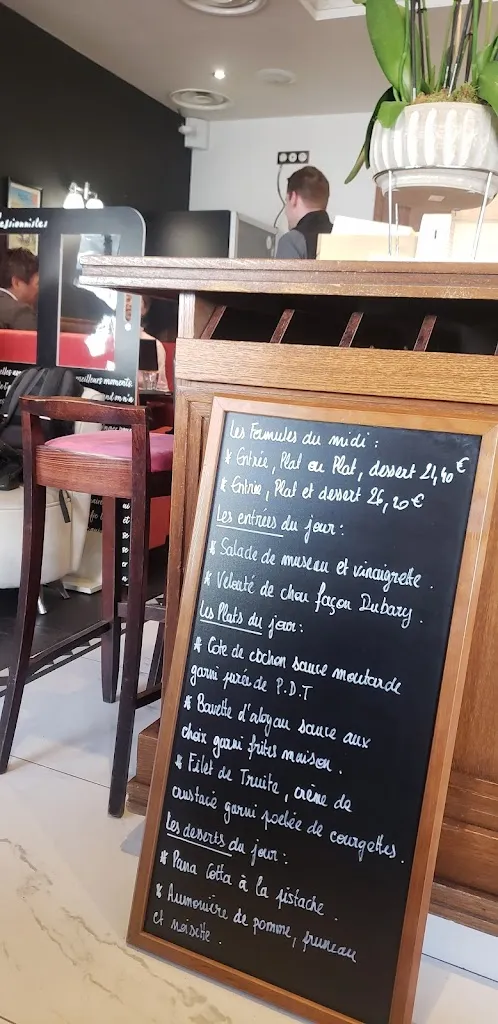 essionnistes
meilleurs moments,
Les Formules du midi :
* Entrée, Plat ou Plat, dessert 21,40 €
* Entrée, Plat et dessert 26,20 €
Les entrées du jour :
* Salade de museau et vinaigrette .
* Velouté de chou façon Dubary .
Les Plats du jour :
* Cote de cochon sauce moutarde
garni purée de P.D.T
* Bavette d'aloyau sauce aux
choix garni frites maison .
* Filet de Truite, crème de
crustacé garni poelée de courgettes .
Les desserts du jour :
* Pana Cotta à la pistache .
* Aumonière de pomme, pruneau
et noisette .